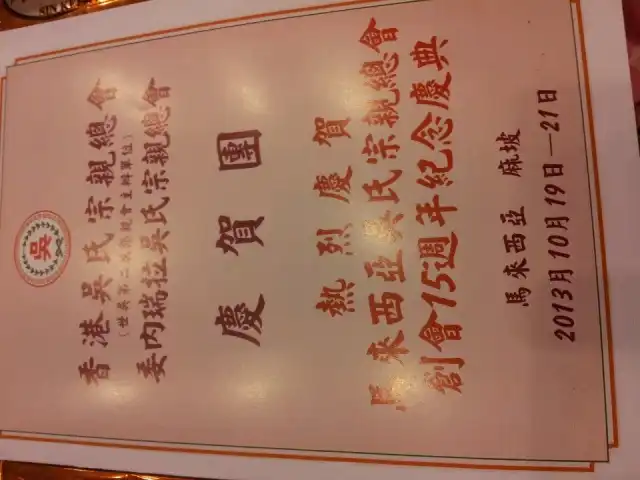 吳
香港吳氏宗親總會
(世吳第二次懇親會主辦單位)
委內瑞拉吳氏宗親總會
慶賀團
熱烈慶賀
馬來西亞吳氏宗親總會
創會15週年紀念慶典
馬來西亞 麻坡
2013月10月19日—21日